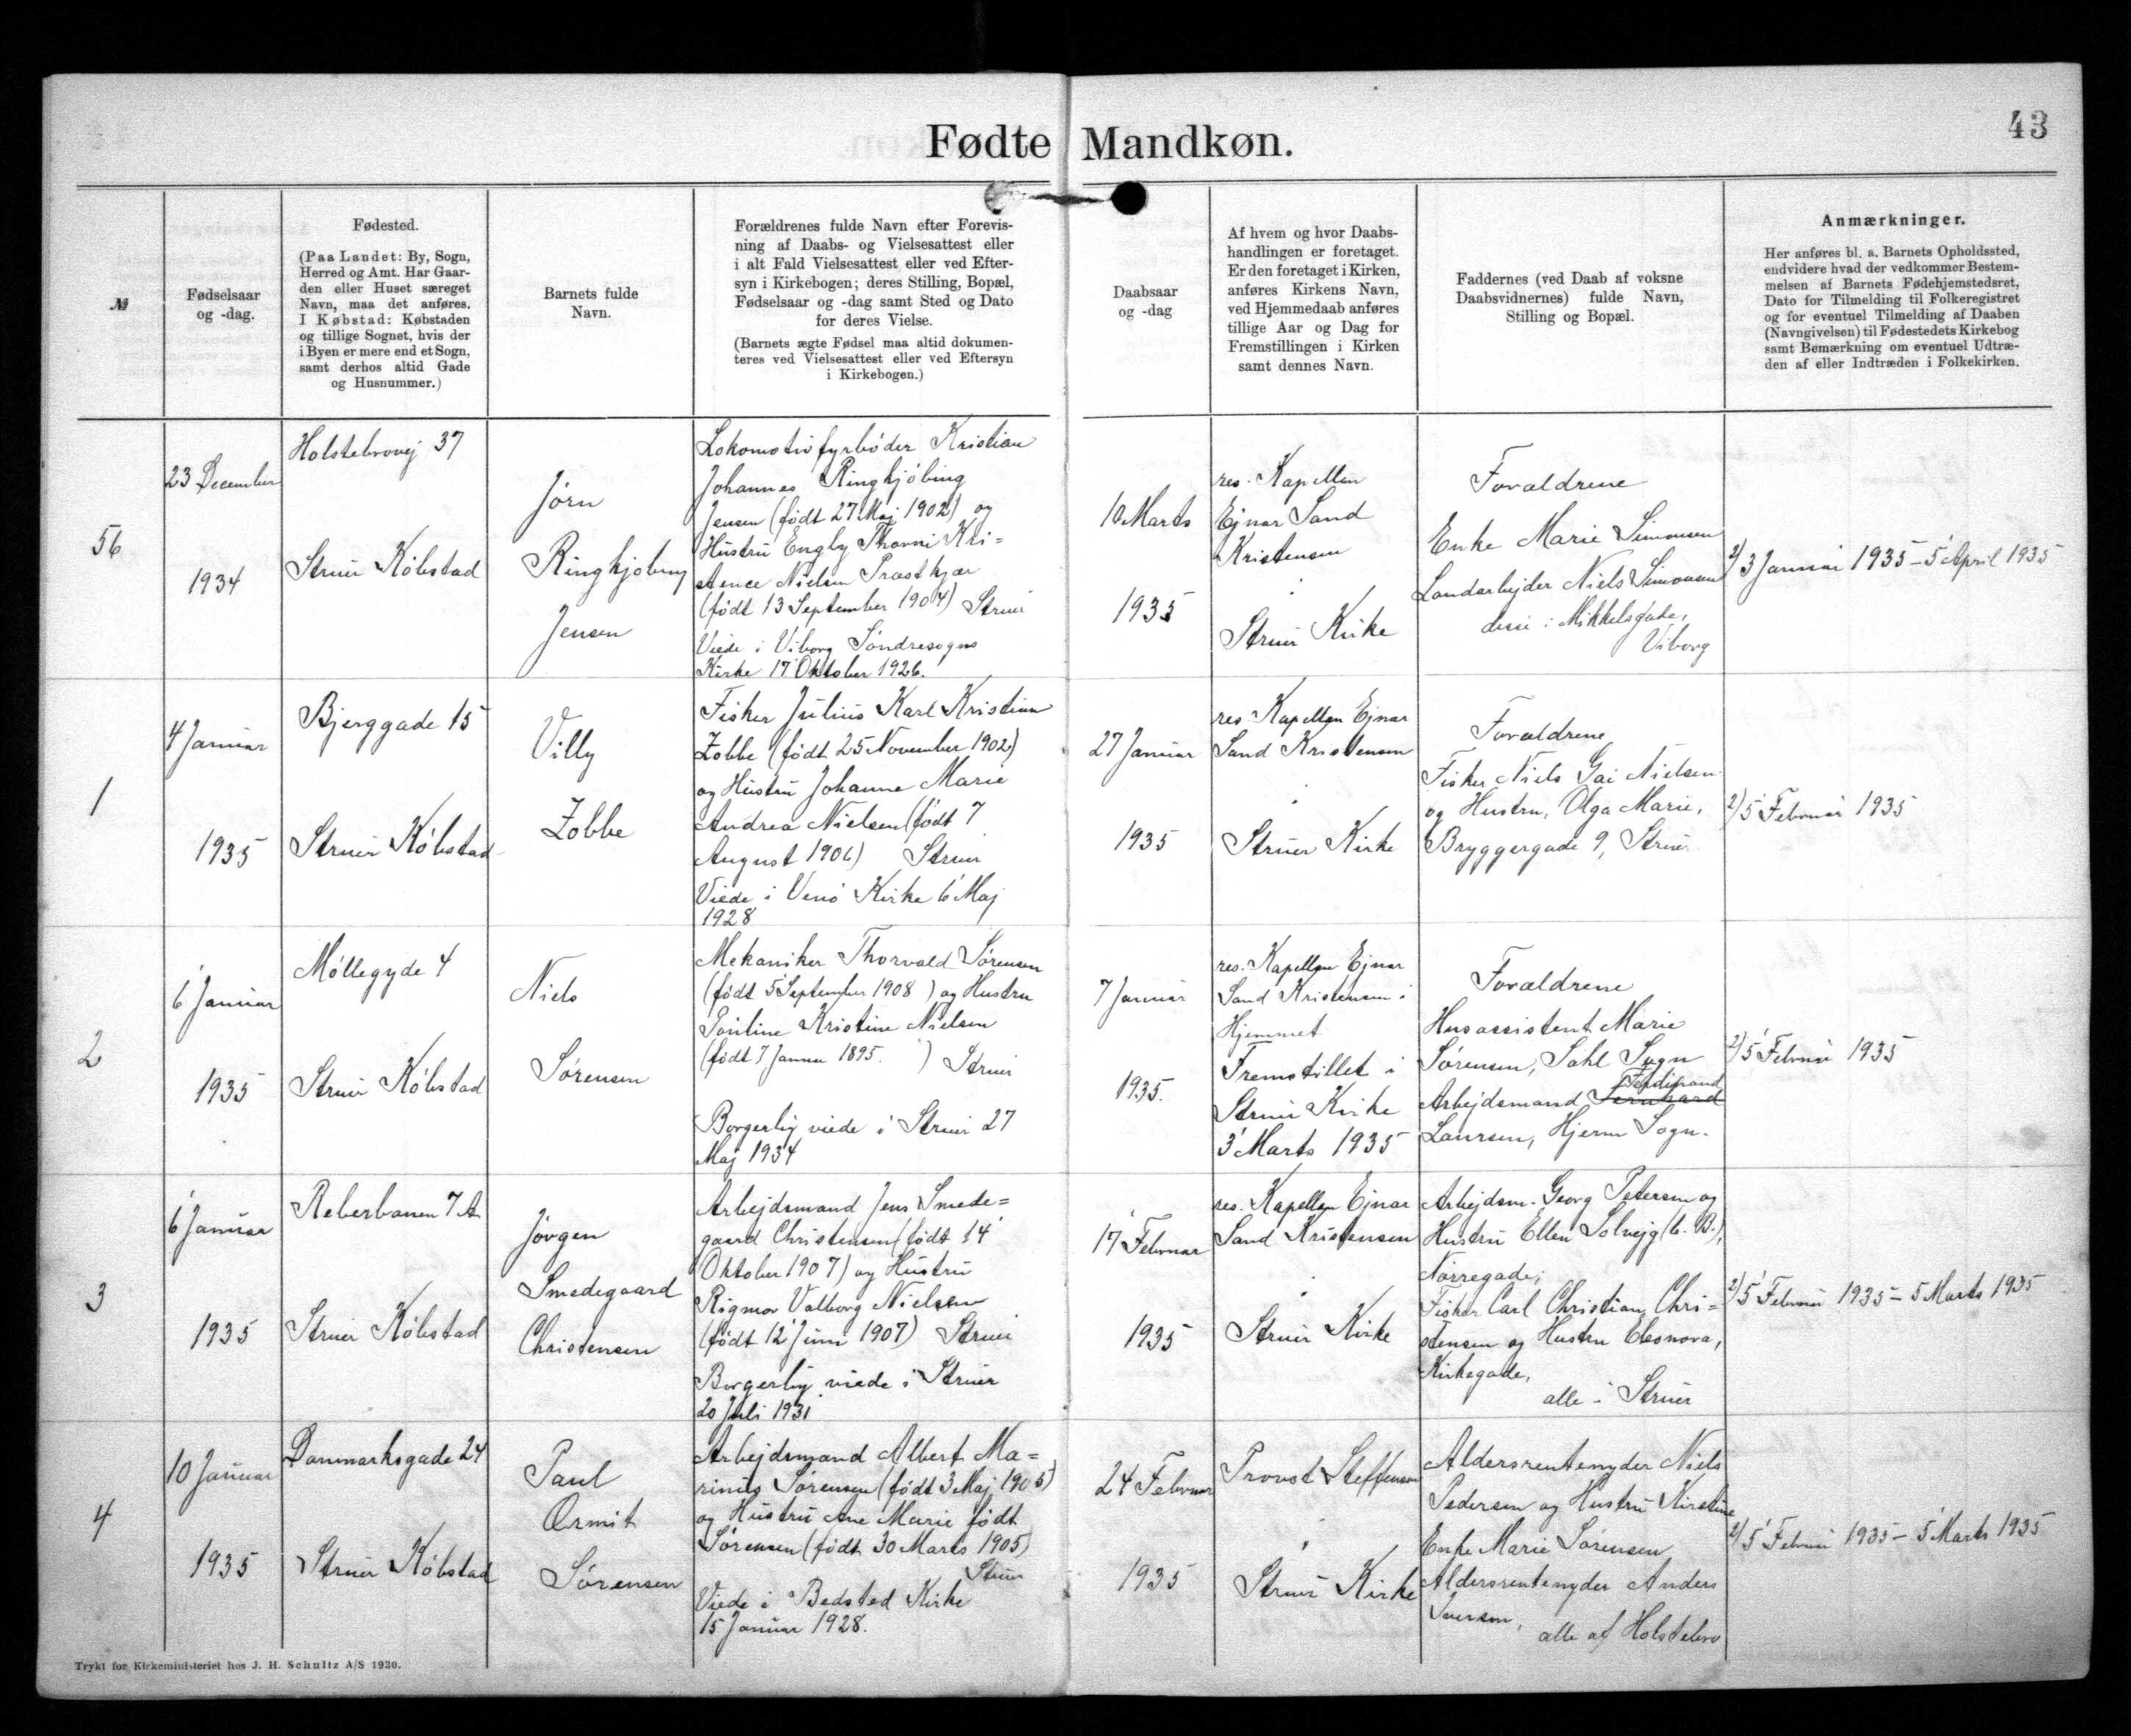 Fødte Mandkøn.
43
№
Fødselsaar
og -dag.
Fødested.
(Paa Landet: By, Sogn,
Herred og Amt. Har Gaar-
den eller Huset særeget
Navn, maa det anføres.
I Købstad: Købstaden
og tillige Sognet, hvis der
i Byen er mere end et Sogn,
samt derhos altid Gade
og Husnummer.)
Barnets fulde
Navn.
Forældrenes fulde Navn efter Forevis-
ning af Daabs- og Vielsesattest eller
i alt Fald Vielsesattest eller ved Efter-
syn i Kirkebogen; deres Stilling, Bopæl,
Fødselsaar og -dag samt Sted og Dato
for deres Vielse.
(Barnets ægte Fødsel maa altid dokumen-
teres ved Vielsesattest eller ved Eftersyn
i Kirkebogen.)
Daabsaar
og -dag
Af hvem og hvor Daabs-
handlingen er foretaget.
Er den foretaget i Kirken,
anføres Kirkens Navn,
ved Hjemmedaab anføres
tillige Aar og Dag for
Fremstillingen i Kirken
samt dennes Navn.
Faddernes (ved Daab af voksne
Daabsvidnernes) fulde Navn,
Stilling og Bopæl.
Anmærkninger.
Her anføres bl. a. Barnets Opholdssted,
endvidere hvad der vedkommer Bestem-
melsen af Barnets Fødehjemstedsret,
Dato for Tilmelding til Folkeregistret
og for eventuel Tilmelding af Daaben
(Navngivelsen) til Fødestedets Kirkebog
samt Bemærkning om eventuel Udtræ-
den af eller Indtræden i Folkekirken.
56
23 December
1934
Holstebrovej 37
Struer Købstad
Jørn
Ringkjøbing
Jensen
Lokomotivfyrbøder Kristian
Johannes Ringkjøbing
Jensen (født 27 Maj 1902) og
Hustru Engby Thorni Kri=
stence Nielsen Præstkjær
(født 13 September 1904) Struer
Viede i Viborg Søndresogns
Kirke 17 Oktober 1926.
10 Marts
1935
res. Kapellan
Ejnar Sand
Kristensen
Struer Kirke
Forældrene
Enke Marie Simonsen
Landarbejder Niels Simonsen
disse i Mikkelsgade,
Viborg
2/ 3 Januar 1935 - 5 April 1935
1
4 Januar
1935
Bjerggade 15
Struer Købstad
Villy
Zobbe
Fisker Julius Karl Kristian
Zobbe (født 25 November 1902)
og Hustru Johanne Marie
Andrea Nielsen (født 7
August 1906) Struer
Viede i Venø Kirke 6 Maj
1928
27 Januar
1935
res. Kapellan Ejnar
Sand Kristensen
Struer Kirke
Forældrene
Fisker Niels Gai Nielsen
og Hustru, Olga Marie,
Bryggergade 9, Struer.
2/ 5 Februar 1935
2
6 Januar
1935
Møllegyde 4
Struer Købstad
Niels
Sørensen
Mekaniker Thorvald Sørensen
(født 5 September 1908 ) og Hustru
Pouline Kristine Nielsen
(født 7 Januar 1895. ) Struer
Borgerlig viede i Struer 27
Maj 1934
7 Januar
1935.
res. Kapellan Ejnar
Sand Kristensen i
Hjemmet
Fremstillet i
Struer Kirke
3 Marts 1935
Forældrene
Husassistent Marie
Sørensen, Sahl Sogn
Ferdinand
Arbejdsmand
Laursen, Hjerm Sogn.
2/ 5 Februar 1935
3
6 Januar
1935
Reberbanen 7A
Struer Købstad
Jørgen
Smedegaard
Christensen
Arbejdsmand Jens Smede=
gaard Christensen (født 14
Oktober 1907) og Hustru
Rigmor Valborg Nielsen
(født 12 Juni 1907) Struer
Borgerlig viede i Struer
20 Juli 1931
17 Februar
1935
res. Kapellan Ejnar
Sand Kristensen
Struer Kirke
Arbejdsm. Georg Petersen og
Hustru Ellen Solvejg (b. B.),
Nørregade;
Fisker Carl Christian Chri=
stensen og Hustru Eleonora,
Kirkegade,
alle i Struer
2/ 5 Februar 1935 - 5 Marts 1935
4
10 Januar
1935
Danmarksgade 24
Struer Købstad
Paul
Ørmit
Sørensen
Arbejdsmand Albert Ma=
rinus Sørensen (født 3 Maj 1905)
og Hustru Ane Marie født
Sørensen (født 30 Marts 1905)
Struer
Viede i Bedsted Kirke
15 Januar 1928.
24 Februar
1935
Provst Steffensen
Struer Kirke
Aldersrentenyder Niels
Pedersen og Hustru Kirstine
Enke Marie Sørensen
Aldersrentenyder Anders
Iversen,
alle af Holstebro
2/ 5 Februar 1935 - 5 Marts 1935
Trykt for Kirkeministeriet hos J. H. Schultz A/S 1930.